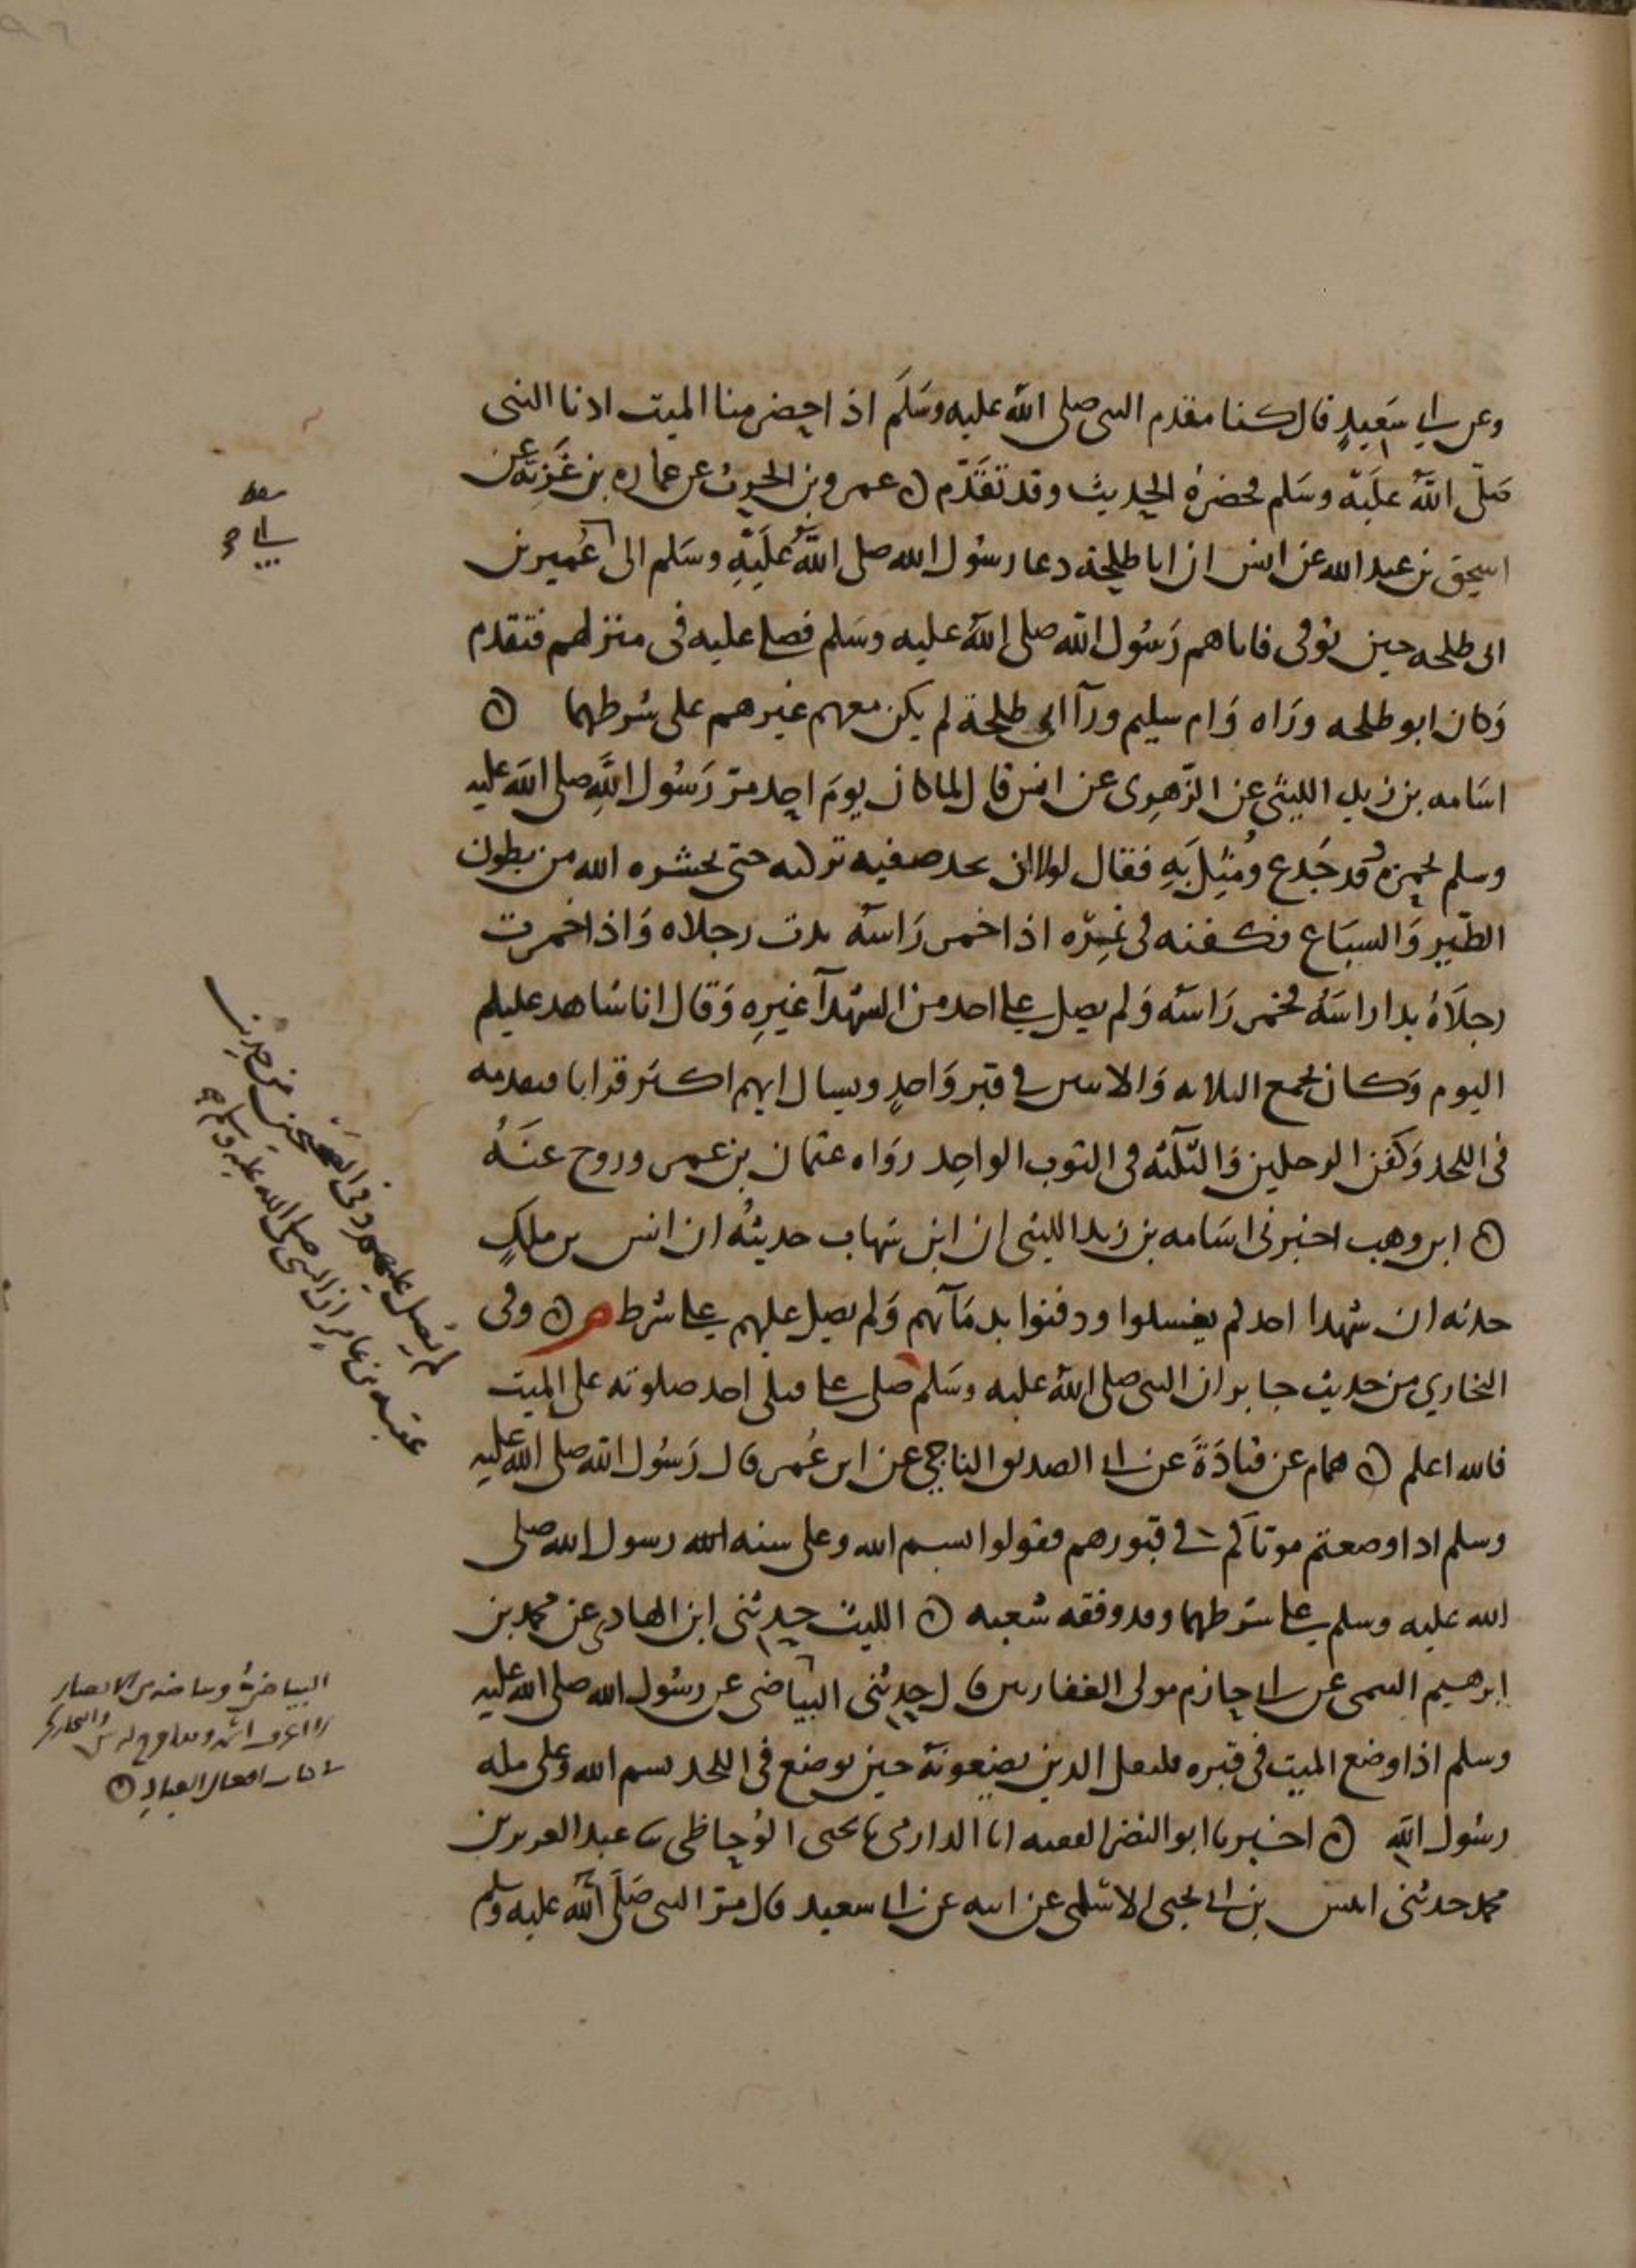 وعن ابي سعيد قال كنا مقدم النبي صلى الله عليه وسلم اذا احتضر منا الميت اذنا النبي
صلى الله عليه وسلم فحضره الحديث وقد تقدم ن عمرو بن الحرث عن عماره بن غزيه عن
اسحق بن عبد الله عن انس ان ابا طلحة دعا رسول الله صلى الله عليه وسلم الى عمير بن
ابي طلحه حين توفى فاتاهم رسول الله صلى الله عليه وسلم فصلى عليه فى منزلهم فتقدم
وكان ابو طلحه وراه وام سليم ورآ ابى طلحة لم يكن معهم غيرهم على شرطهما ن
اسامه بن زيد الليثي عن الزهري عن انس قال لما كان يوم احد مر رسول الله صلى الله عليه
وسلم بحمزه وقد جدع ومثل به فقال لولا ان تجد صفيه تركته حتى يحشره الله من بطون
الطير والسباع فكفنه فى نمره اذا خمر راسه بدت رجلاه واذا خمرت
رجلاه بدا راسه فخمر راسه ولم يصل على احد من الشهدآ غيره وقال انا شاهد عليكم
اليوم وكان يجمع الثلاثه والاثنين في قبر واحد ويسال ايهم اكثر قرانا فيقدمه
فى اللحد وكفن الرجلين والثلثه فى الثوب الواحد رواه عثمان بن عمر وروح عنه
ن ابن وهب اخبرنى اسامه بن زيد الليثى ان ابن شهاب حدثه ان انس بن ملك
حدثه ان شهدا احد لم يغسلوا ودفنوا بدمآئهم ولم يصل عليهم على شرط م ن وفى
البخاري من حديث جابر ان النبى صلى الله عليه وسلم صلى على قتلى احد صلوته على الميت
فالله اعلم ن همام عن قتادة عن ابى الصديق الناجي عن ابن عمر قال رسول الله صلى الله عليه
وسلم اذا وضعتم موتاكم في قبورهم فقولوا بسم الله وعلى سنه الله رسول الله صلى
الله عليه وسلم على شرطهما وقد وقفه شعبه ن الليث حدثنى ابن الهادي عن محمد بن
ابرهيم التيمى عن ابى حازم مولى الغفاريين قال حدثنى البياضى عن رسول الله صلى الله عليه
وسلم اذا وضع الميت فى قبره فليقل الذين يضعونه حين يوضع فى اللحد بسم الله وعلى مله
رسول الله ن اخبرنا ابو النضر الفقيه انا الدارمى نا يحيى الوحاظى نا عبد العزيز بن
محمد حدثنى انيس بن ابى يحيى الاسلمى عن ابيه عن ابى سعيد قال مر النبى صلى الله عليه وسلم
سقط
لم يصل عليهم وفى الصحيحين من حديث
عقبه بن عامر ان النبى صلى الله عليه وسلم